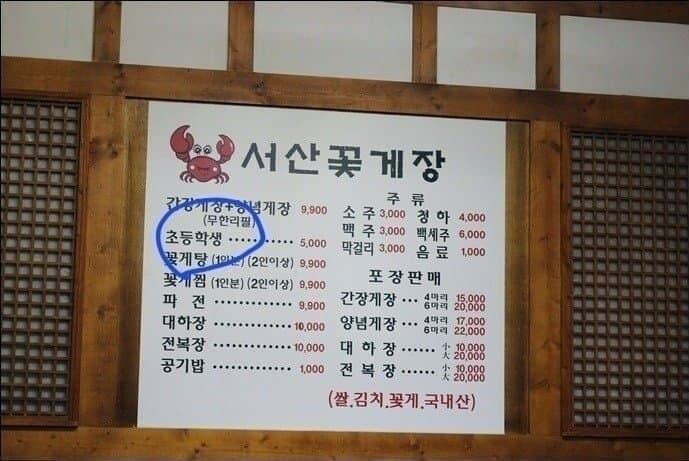 서산꽃게장
간장게장+양념게장 9,900
(무한리필)
초등학생 ············ 5,000
꽃게탕 (1인분) (2인이상) 9,900
꽃게찜 (1인분) (2인이상) 9,900
파 전 ················ 9,900
대하장 ··············· 10,000
전복장 ··············· 10,000
공기밥 ··············· 1,000
주 류
소 주 3,000 청 하 4,000
맥 주 3,000 백세주 6,000
막걸리 3,000 음 료 1,000
포장판매
간장게장 ··· 4마리 15,000
6마리 20,000
양념게장 ··· 4마리 17,000
6마리 22,000
대 하 장 ··· 小 10,000
大 20,000
전 복 장 ··· 小 10,000
大 20,000
(쌀.김치.꽃게.국내산)